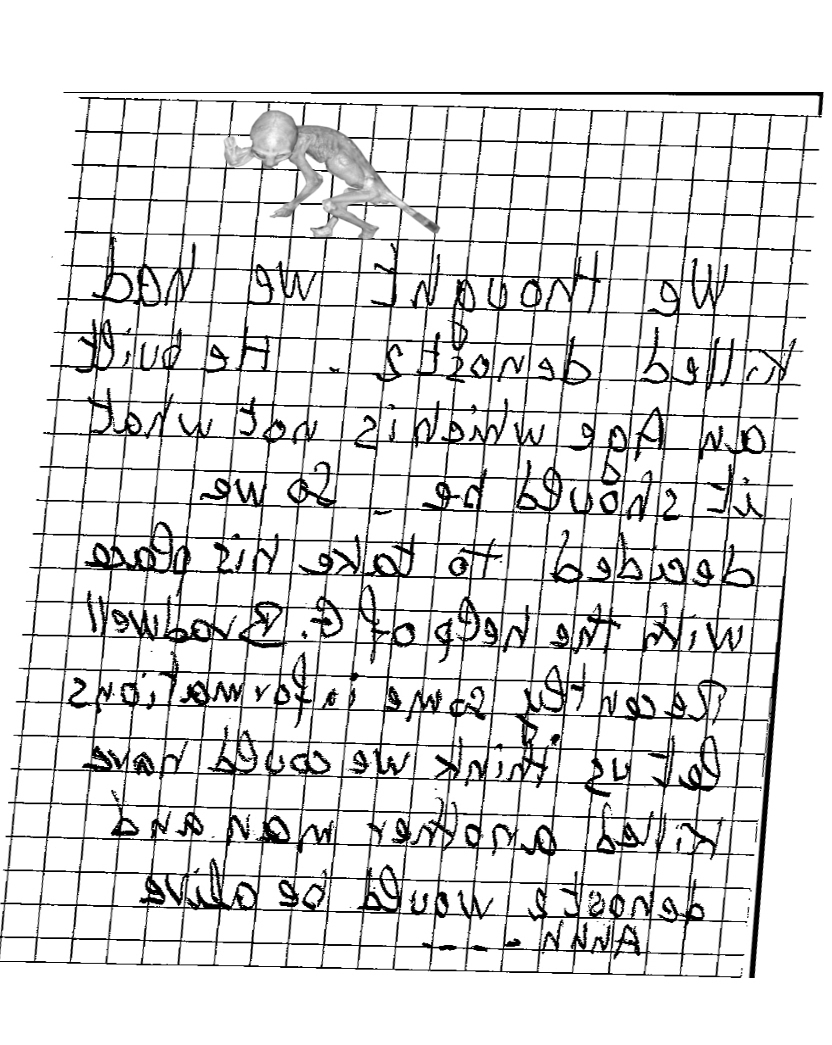 We thought we had
killed denost2 . He built
an Age which is not what
it should be . So we
decided to take his place
with the help of G. Bradwell
Recently some informations
let us think we could have
killed another man and
denost2 would be alive
ANNN ----